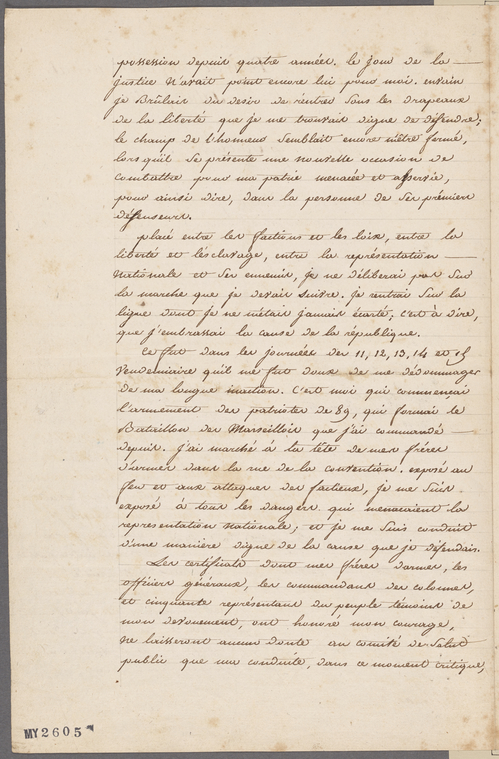 possession depuis quatre années. le jour de la
justice n'avait point encore lui pour moi. envain
je Brûlais du desir de rentrer sous les drapeaux
de la liberté que je me trouvais digne de défendre;
le champ de l'honneur semblait encore m'être fermé,
lorsqu'il se présente une nouvelle occasion de
combattre pour ma patrie menacée et asservie,
pour ainsi dire, dans la personne de ses premiers
défenseurs.
placé entre les factions et les loix, entre la
liberté et l'ésclavage, entre la représentation
Nationale et ses ennemis, je ne déliberai pas sur
la marche que je devais suivre. je rentrai sur la
ligne dont je ne m'étais jamais écarté, c'est à dire,
que j'embrassai la cause de la république.
Ce fut dans les journées des 11, 12, 13, 14 et 15
Vendemiaire qu'il me fut doux de me dédommager
de ma longue inaction. C'est moi qui commençai
l'armement des patriotes de 89, qui formai le
Bataillon des Marseillois que j'ai commandé
depuis. j'ai marché à la tête de mes frères
d'armes dans la rue de la convention. exposé au
feu et aux attaques des factieux, je me suis
exposé à tous les dangers qui menacaient la
représentation nationale; et je me suis conduit
d'une manière digne de la cause que je défendais.
Les certificats dont mes frères d'armes, les
officiers généraux, les commandans des colonnes,
et cinquante représentans du peuple témoins de
mon devouement, ont honoré mon courage,
ne laisseront aucun doute au comité de Salut
public que ma conduite, dans ce moment critique,
MY2605